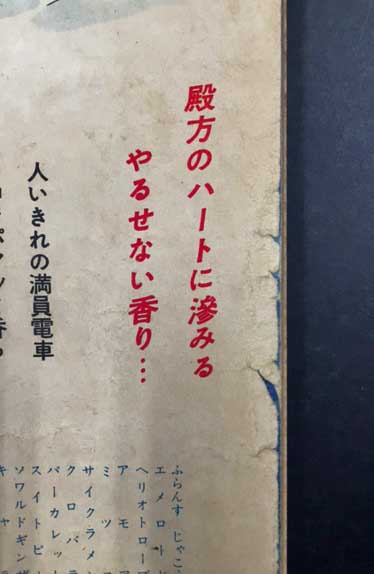 殿方のハートに滲みる
やるせない香り…
人いきれの満員電車
ふらんす じゃこ
エメロド
ヘリオトロープ
アモア
ミツ
サイクラメン
クロバラ
バーカレット
スイトピ
ソワルドギンザ
キャラ